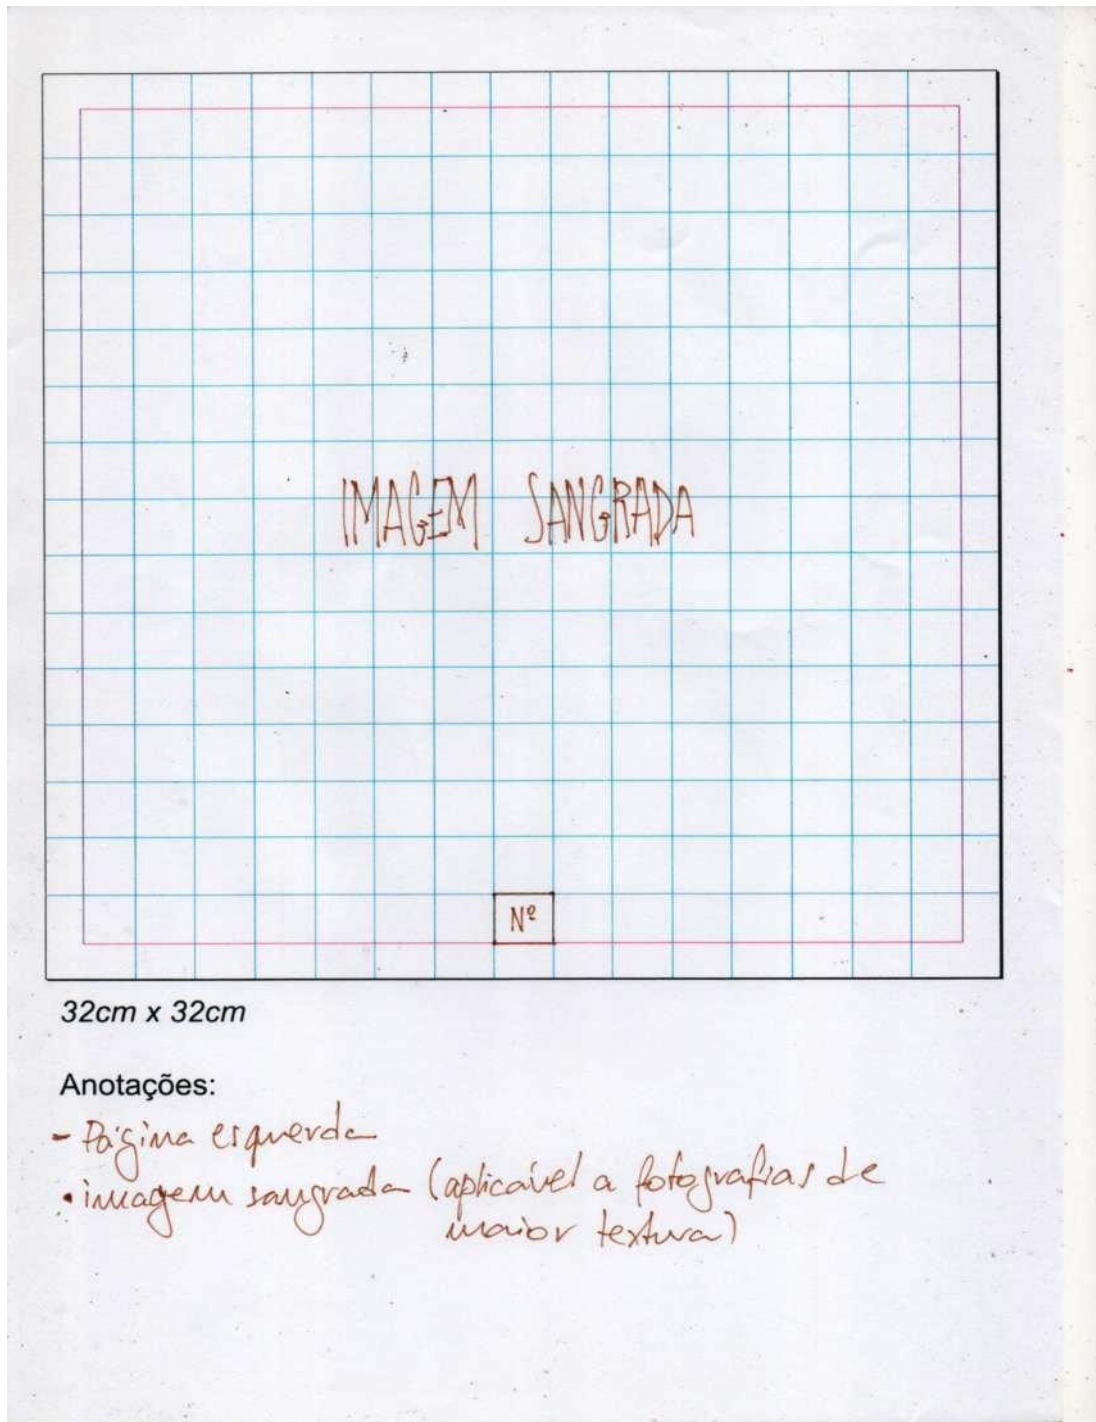 IMAGEM SANGRADA
Nº
32cm x 32cm
Anotações:
- Página esquerda
• imagem sangrada (aplicável a fotografias de
maior textura)